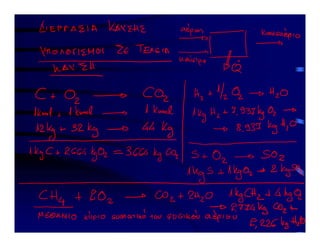 ΔΙΕΡΓΑΣΙΑ ΚΑΥΣΗΣ
ΥΠΟΛΟΓΙΣΜΟΙ ΣΕ ΤΕΛΕΙΑ
ΚΑΥΣΗ
αέριο
καύσιμο
καυσαέριο
Q̇
C + O₂ → CO₂
1 kmol + 1 kmol → 1 kmol
12 kg + 32 kg → 44 kg
1 kg C + 2.664 kg O₂ = 3.664 kg CO₂
H₂ + 1/2 O₂ → H₂O
1 kg H₂ + 7.937 kg O₂ →
→ 8.937 kg H₂O
S + O₂ → SO₂
1 kg S + 1 kg O₂ → 2 kg SO₂
CH₄ + 2O₂ → CO₂ + 2H₂O
1 kg CH₄ + 4 kg O₂
→ 2.724 kg CO₂ +
2.226 kg H₂O
ΜΕΘΑΝΙΟ κύριο συστατικό του φυσικού αερίου